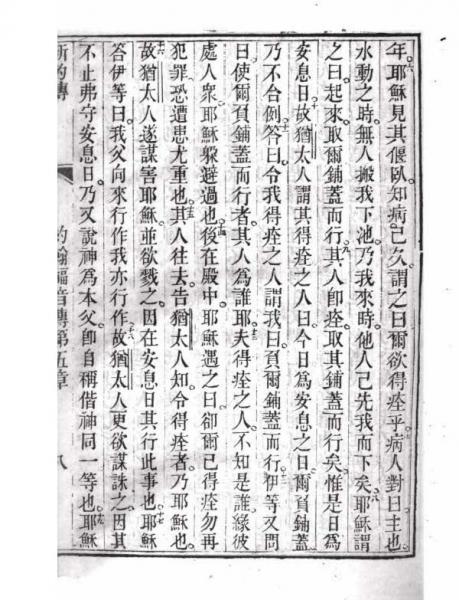 年耶穌見其偃臥知病已久謂之曰爾欲得痊乎病人對曰主也
水動之時無人搬我下池乃我來時他人已先我而下矣耶穌謂
之曰起來取爾鋪蓋而行其人卽痊取其鋪蓋而行矣惟是日爲
安息日故猶太人謂其得痊之人曰今日爲安息之日爾負鋪蓋
乃不合例答曰令我得痊之人謂我曰負爾鋪蓋而行伊等又問
曰使爾負鋪蓋而行者其人爲誰耶夫得痊之人不知是誰緣彼
處人衆耶穌躲避過也後在殿中耶穌遇之曰卻爾已得痊勿再
犯罪恐遭患尤重也其人往去告猶太人知令得痊者乃耶穌也
故猶太人遂謀害耶穌並欲戮之因在安息日其行此事也耶穌
答伊等曰我父向來行作我亦行作故猶太人更欲謀誅之因其
不止弗守安息日乃又說神爲本父卽自稱偕神同一等也耶穌
新約傳 約翰福音傳第五章 八